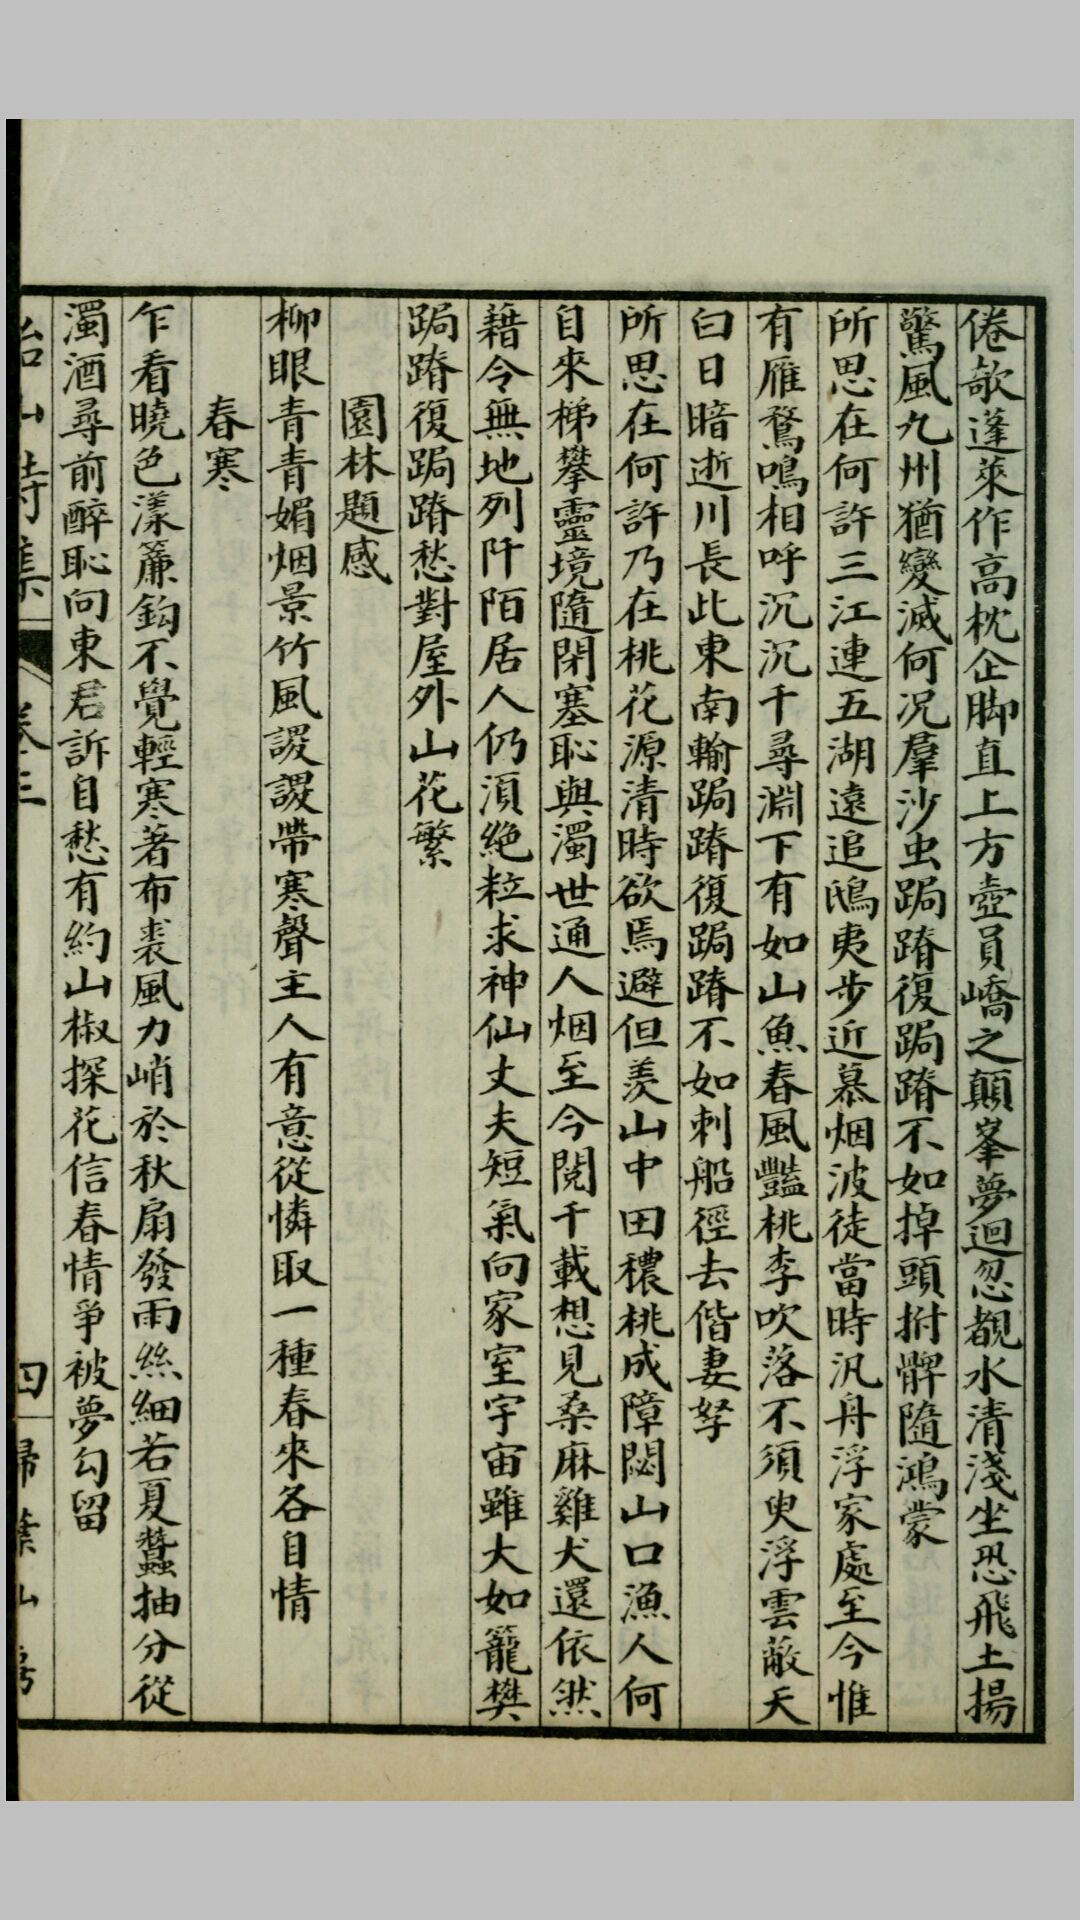 倦欹蓬萊作高枕企脚直上方壺員嶠之顛峯夢迴忽覩水清淺坐恐飛土揚
驚風九州猶變滅何况羣沙虫跼蹐復跼蹐不如掉頭拊髀隨鴻蒙
所思在何許三江連五湖遠追鴟夷步近慕烟波徒當時汎舟浮家處至今惟
有雁鶩鳴相呼沉沉千尋淵下有如山魚春風豔桃李吹落不須臾浮雲蔽天
白日暗逝川長此東南輸跼蹐復跼蹐不如刺船徑去偕妻孥
所思在何許乃在桃花源清時欲焉避但羨山中田穠桃成障閟山口漁人何
自來梯攀靈境隨閉塞恥與濁世通人烟至今閱千載想見桑麻雞犬還依然
藉令無地列阡陌居人仍須絶粒求神仙丈夫短氣向家室宇宙雖大如籠樊
跼蹐復跼蹐愁對屋外山花繁
園林題感
柳眼青青媚烟景竹風謖謖帶寒聲主人有意從憐取一種春來各自情
春寒
乍看曉色漾簾鈎不覺輕寒著布裘風力峭於秋扇發雨絲細若夏蠶抽分從
濁酒尋前醉恥向東君訴自愁有約山椒探花信春情爭被夢勾留
山詩集 卷三 四 掃葉山房